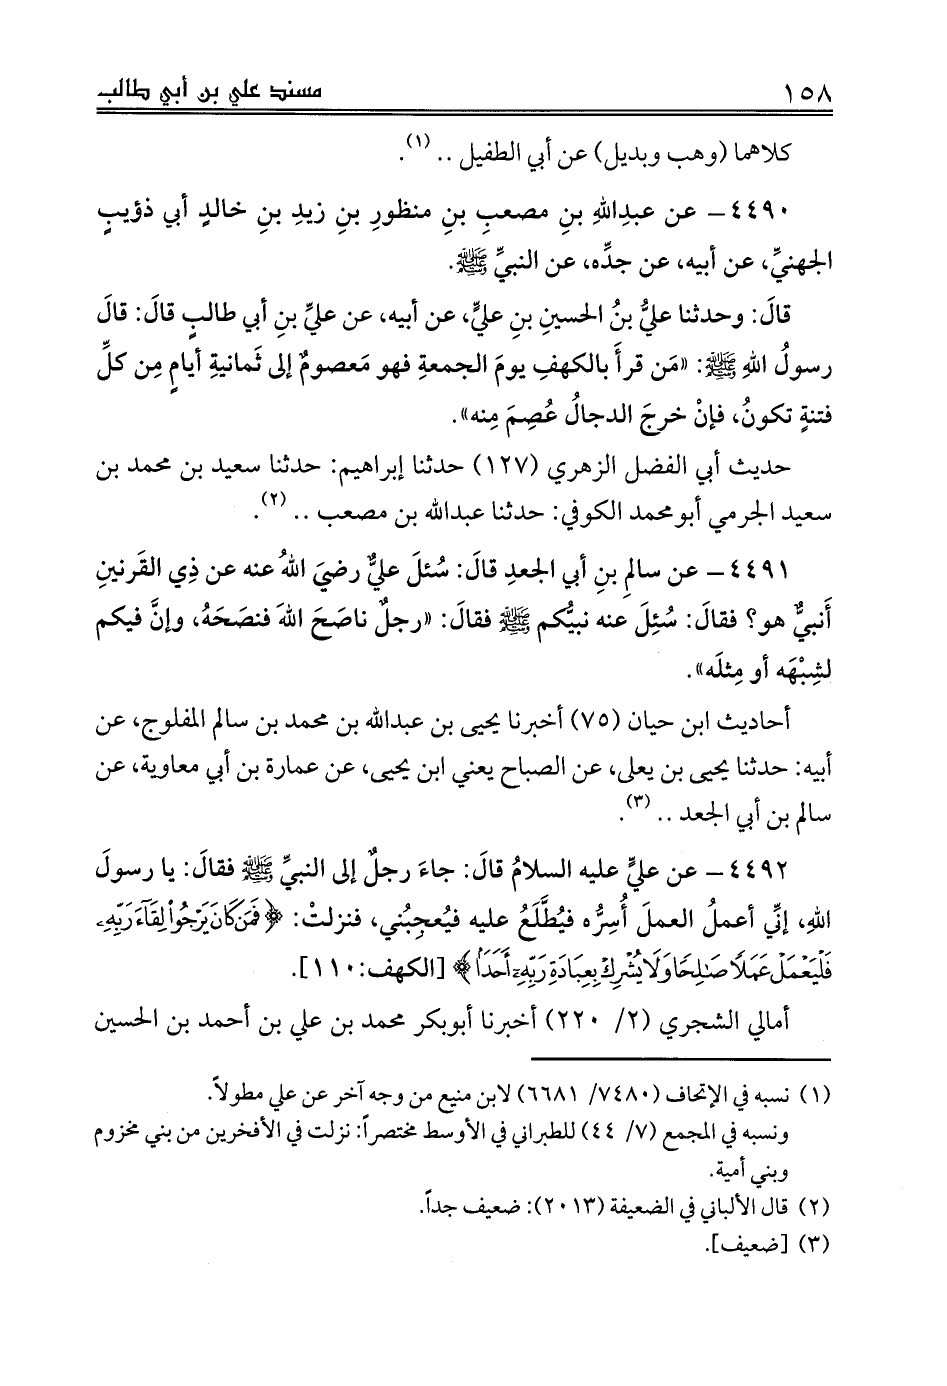 ١٥٨ مسند علي بن أبي طالب
كلاهما (وهب وبديل) عن أبي الطفيل .. (١).
٤٤٩٠ – عن عبدِاللهِ بنِ مصعبِ بنِ منظورِ بنِ زيدِ بنِ خالدٍ أبي ذؤيبٍ
الجهنيِّ، عن أبيه، عن جدِّه، عن النبيِّ ﷺ.
قالَ: وحدثنا عليُّ بنُ الحسينِ بنِ عليٍّ، عن أبيه، عن عليِّ بنِ أبي طالبٍ قالَ: قالَ
رسولُ اللهِ ﷺ: «مَن قرأَ بالكهفِ يومَ الجمعةِ فهو مَعصومٌ إلى ثَمانيةِ أيامٍ مِن كلِّ
فتنةٍ تكونُ، فإنْ خرجَ الدجالُ عُصِمَ مِنه».
حديث أبي الفضل الزهري (١٢٧) حدثنا إبراهيم: حدثنا سعيد بن محمد بن
سعيد الجرمي أبومحمد الكوفي: حدثنا عبدالله بن مصعب .. (٢).
٤٤٩١ – عن سالمِ بنِ أبي الجعدِ قالَ: سُئلَ عليٌّ رضيَ اللهُ عنه عن ذِي القَرنينِ
أَنبيٌّ هو؟ فقالَ: سُئِلَ عنه نبيُّكم ﷺ فقالَ: «رجلٌ ناصَحَ اللهَ فنصَحَهُ، وإنَّ فيكم
لشِبْهَه أو مِثلَه».
أحاديث ابن حيان (٧٥) أخبرنا يحيى بن عبدالله بن محمد بن سالم المفلوج، عن
أبيه: حدثنا يحيى بن يعلى، عن الصباح يعني ابن يحيى، عن عمارة بن أبي معاوية، عن
سالم بن أبي الجعد .. (٣).
٤٤٩٢ – عن عليٍّ عليه السلامُ قالَ: جاءَ رجلٌ إلى النبيِّ ﷺ فقالَ: يا رسولَ
اللهِ، إنِّي أعملُ العملَ أُسِرُّه فيُطَّلَعُ عليه فيُعجِبُني، فنزلتْ: ﴿فَمَن كَانَ يَرْجُوا۟ لِقَآءَ رَبِّهِۦ
فَلْيَعْمَلْ عَمَلًا صَـٰلِحًا وَلَا يُشْرِكْ بِعِبَادَةِ رَبِّهِۦٓ أَحَدًۢا﴾ [الكهف:١١٠].
أمالي الشجري (٢/ ٢٢٠) أخبرنا أبوبكر محمد بن علي بن أحمد بن الحسين
(١) نسبه في الإتحاف (٧٤٨٠/ ٦٦٨١) لابن منيع من وجه آخر عن علي مطولاً.
ونسبه في المجمع (٧/ ٤٤) للطبراني في الأوسط مختصراً: نزلت في الأفخرين من بني مخزوم
وبني أمية.
(٢) قال الألباني في الضعيفة (٢٠١٣): ضعيف جداً.
(٣) [ضعيف].